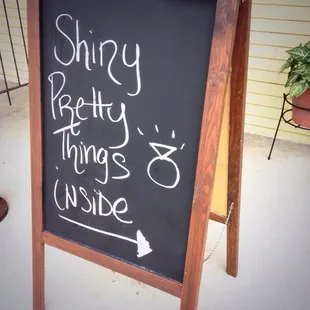 Shiny
Pretty
Things
inside